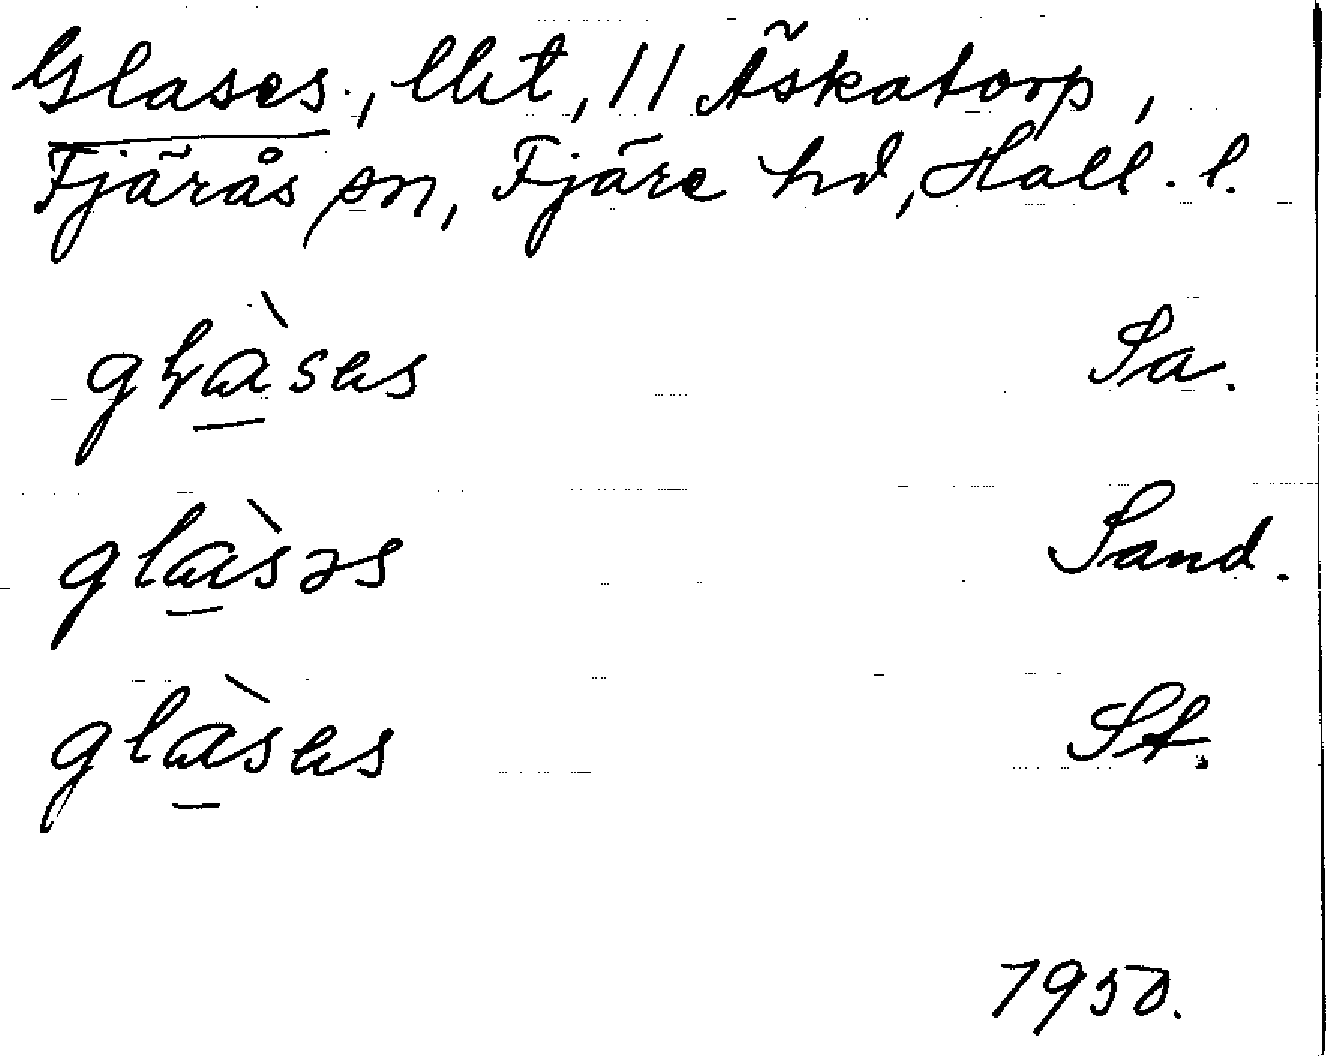 Glases, lht, 11 Äskatorp,
Fjärås sn, Fjäre hd, Hall. l.
gɫàsɐs Sa.
glàsəs Sand.
glàsɐs St.
1950.